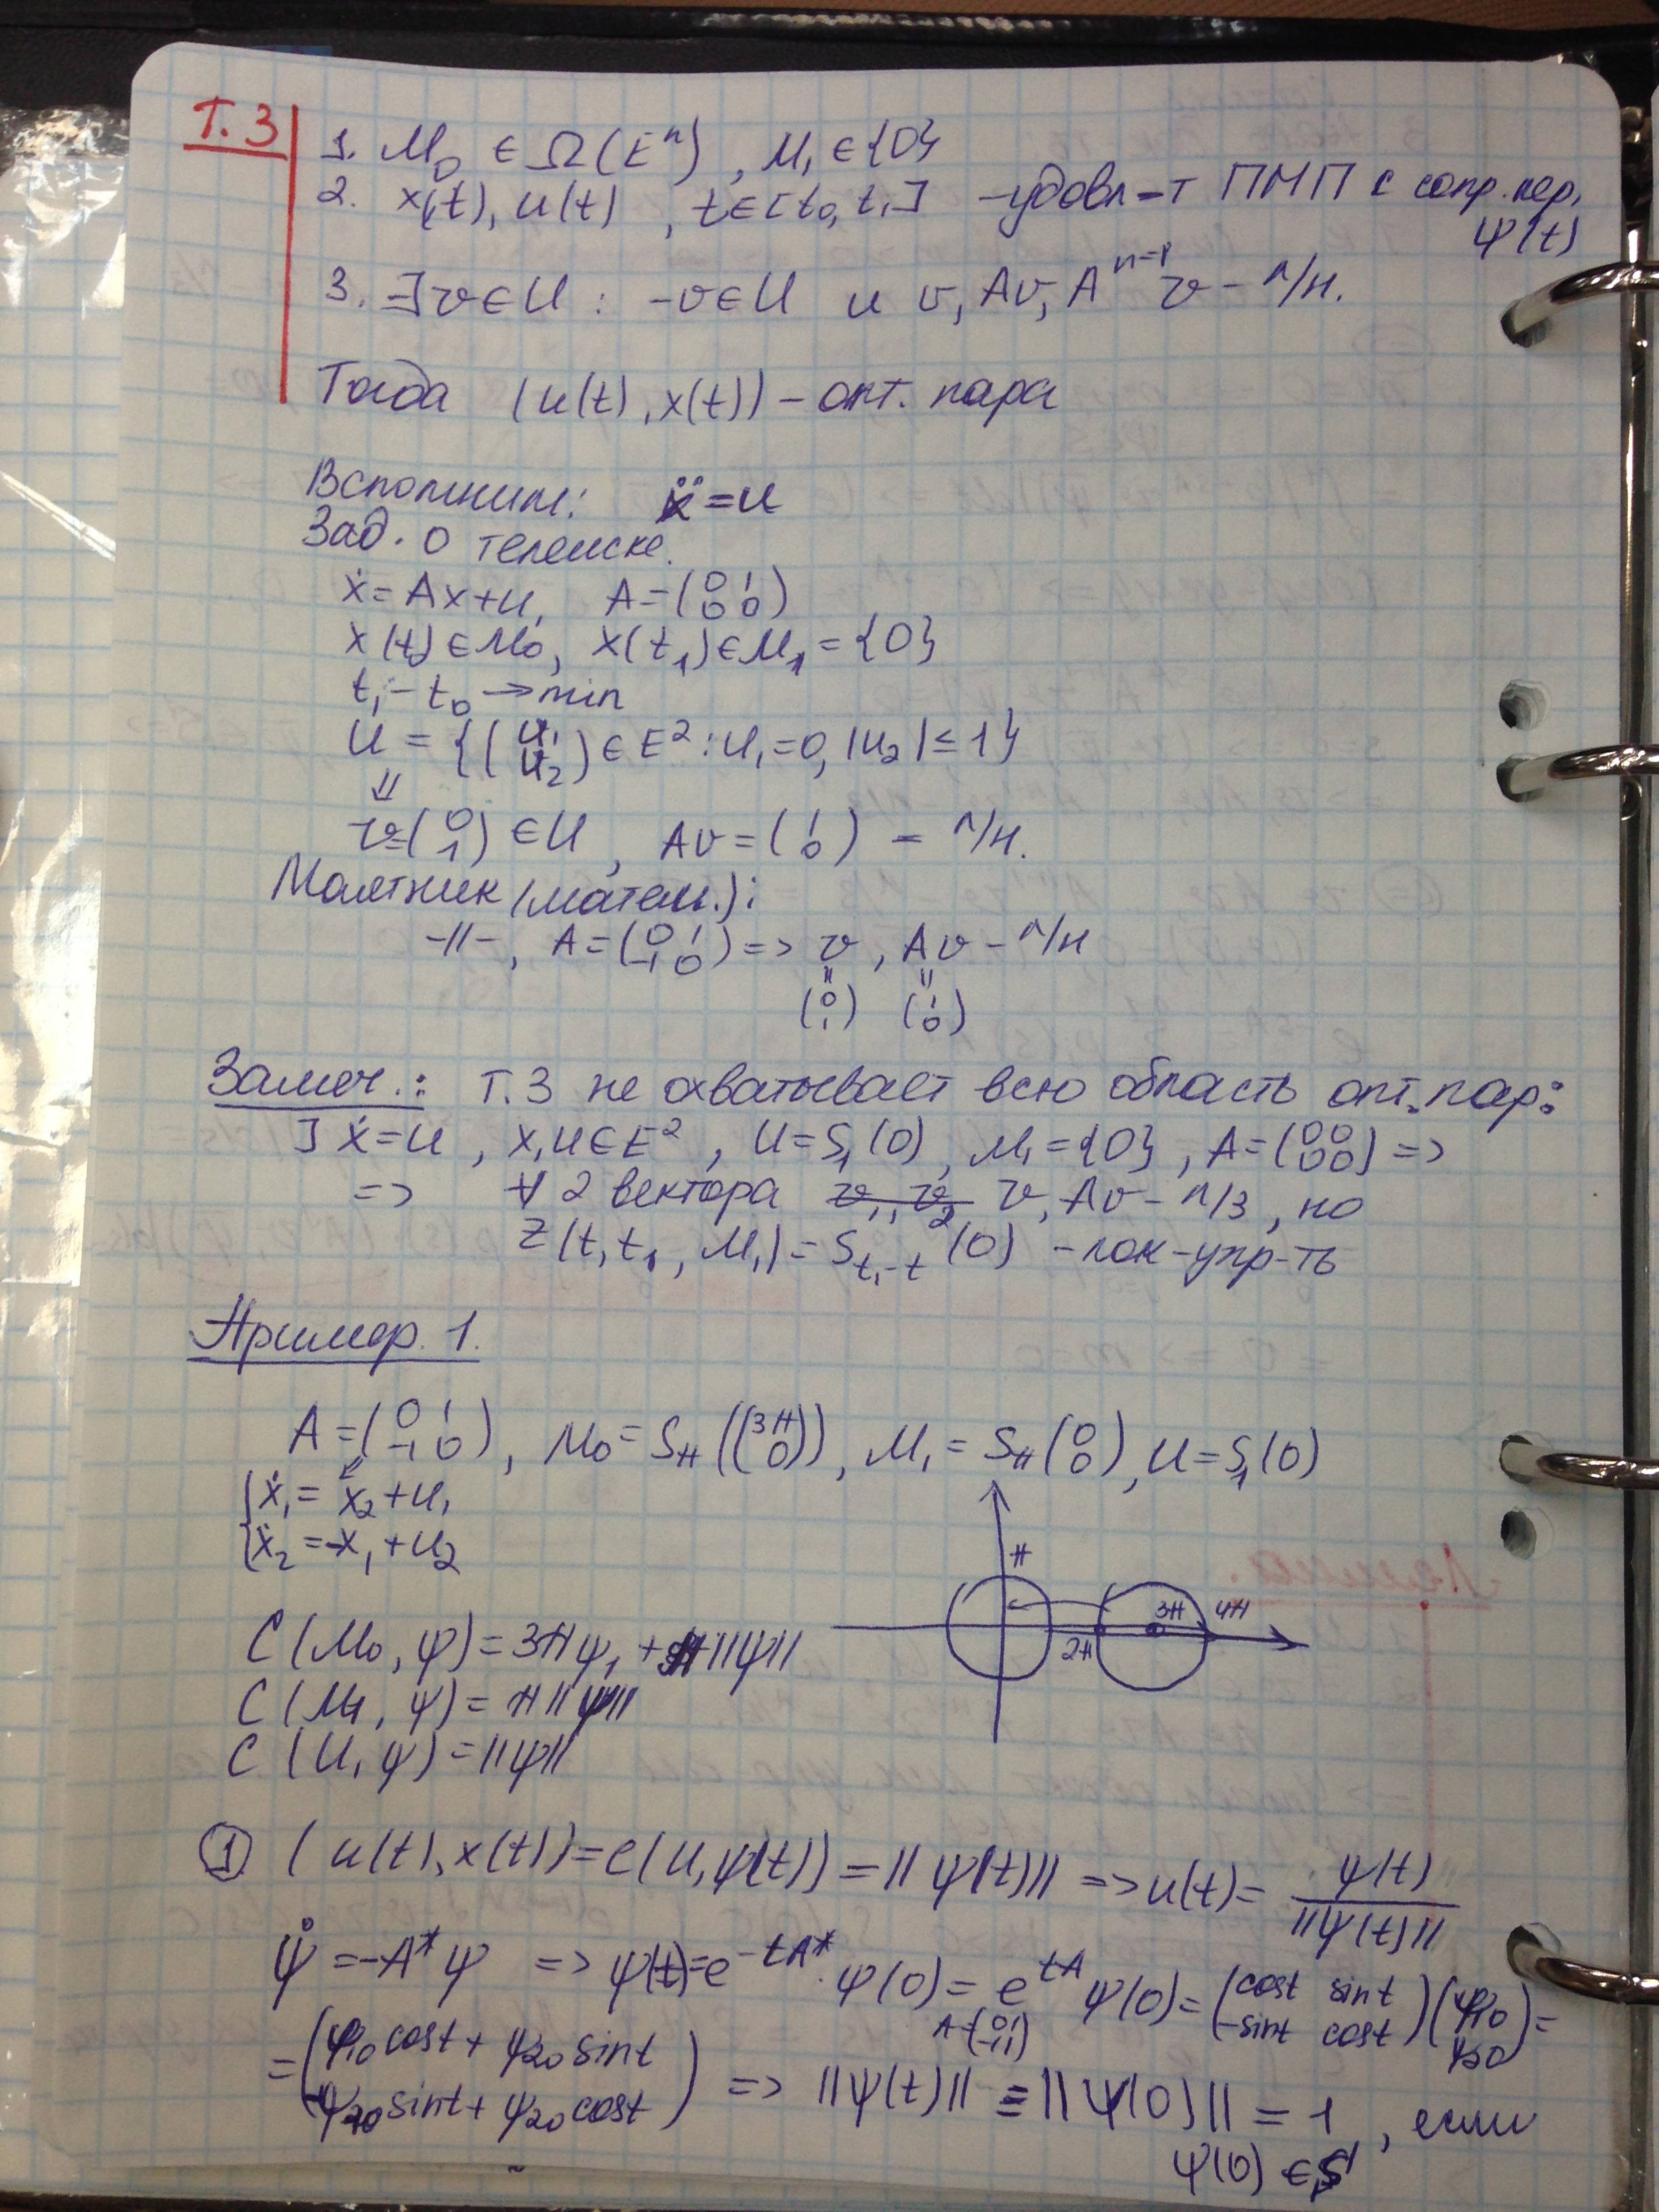 Т. 3
1. M₀ ∈ Ω(Eⁿ), M₁ ∈ {0}
2. x(t), u(t), t∈[t₀, t₁] – удовл-т ПМП с сопр. пер.
ψ(t)
3. ∃ v∈U : -v∈U и v, Av, Aⁿ⁻¹v – л/н.
Тогда (u(t), x(t)) – опт. пара
Вспомним: ẍ = u
Зад. о тележке.
ẋ = Ax+u, A = (0 1; 0 0)
x(t₀)∈M₀, x(t₁)∈M₁ = {0}
t₁ - t₀ → min
U = {(u₁; u₂) ∈ E² : u₁=0, |u₂| ≤ 1}
⇓
v=(0; 1) ∈ U, Av = (1; 0) – л/н.
Маятник (матем.):
-||-, A = (0 1; -1 0) => v, Av – л/н
(0; 1) (1; 0)
Замеч.: Т.3 не охватывает всю область опт. пар:
] ẋ=u, x,u∈E², U=S₁(0), M₁={0}, A=(0 0; 0 0) =>
=> ∀ 2 вектора v, Av – л/з, но
Z(t, t₁, M₁) = S_{t₁-t}(0) – лок-упр-ть
Пример 1.
A = (0 1; -1 0), M₀ = S_π((3π; 0)), M₁ = S_π(0; 0), U = S₁(0)
{ẋ₁ = x₂+u₁
{ẋ₂ = -x₁+u₂
π
3π 4π
2π
C(M₀, ψ) = 3πψ₁ + π||ψ||
C(M₁, ψ) = π||ψ||
C(U, ψ) = ||ψ||
① (u(t), x(t)) = c(U, ψ(t)) = ||ψ(t)|| => u(t) = ψ(t)/||ψ(t)||
ψ̇ = -A*ψ => ψ(t) = e^{-tA*}·ψ(0) = e^{tA}ψ(0) = (cost sint; -sint cost)(ψ₁₀; ψ₂₀) =
A=(0 1; -1 1)
= (ψ₁₀cost + ψ₂₀sint; -ψ₁₀sint + ψ₂₀cost) => ||ψ(t)|| ≡ ||ψ(0)|| = 1, если
ψ(0) ∈ S